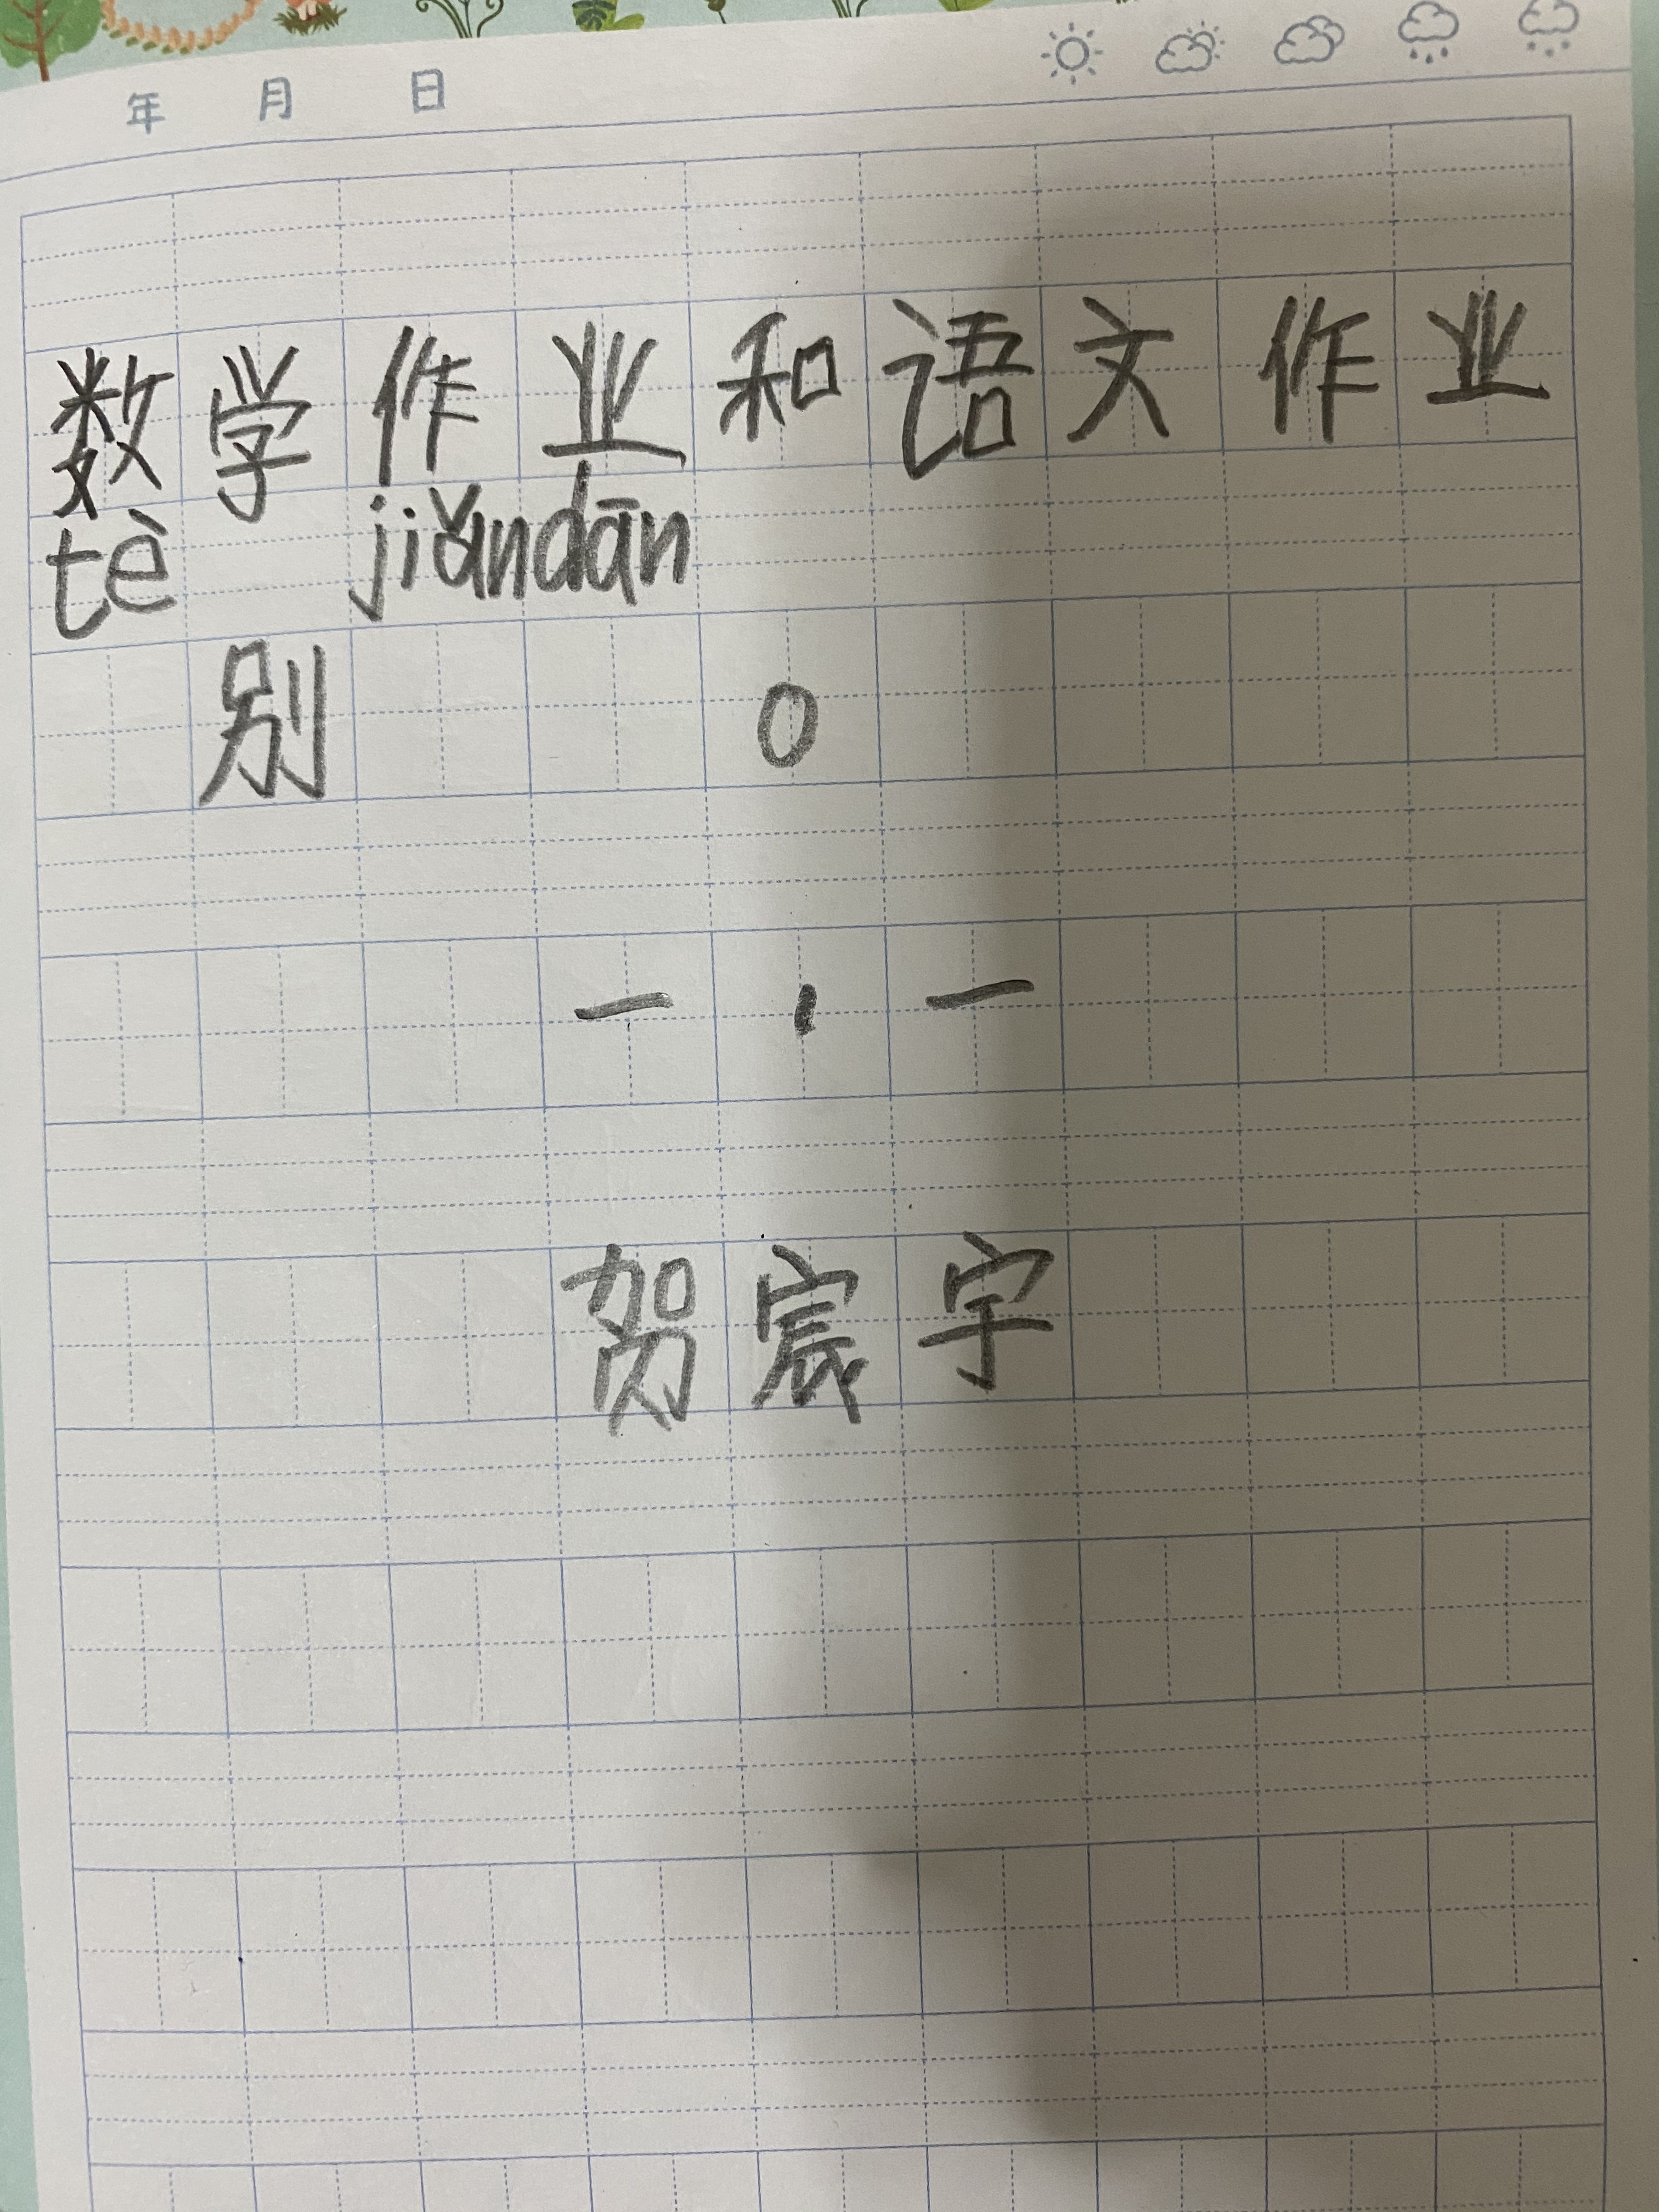 年 月 日
数学作业和语文作业
tè jiǎndān
别 。
一 , 一
贺宸宇